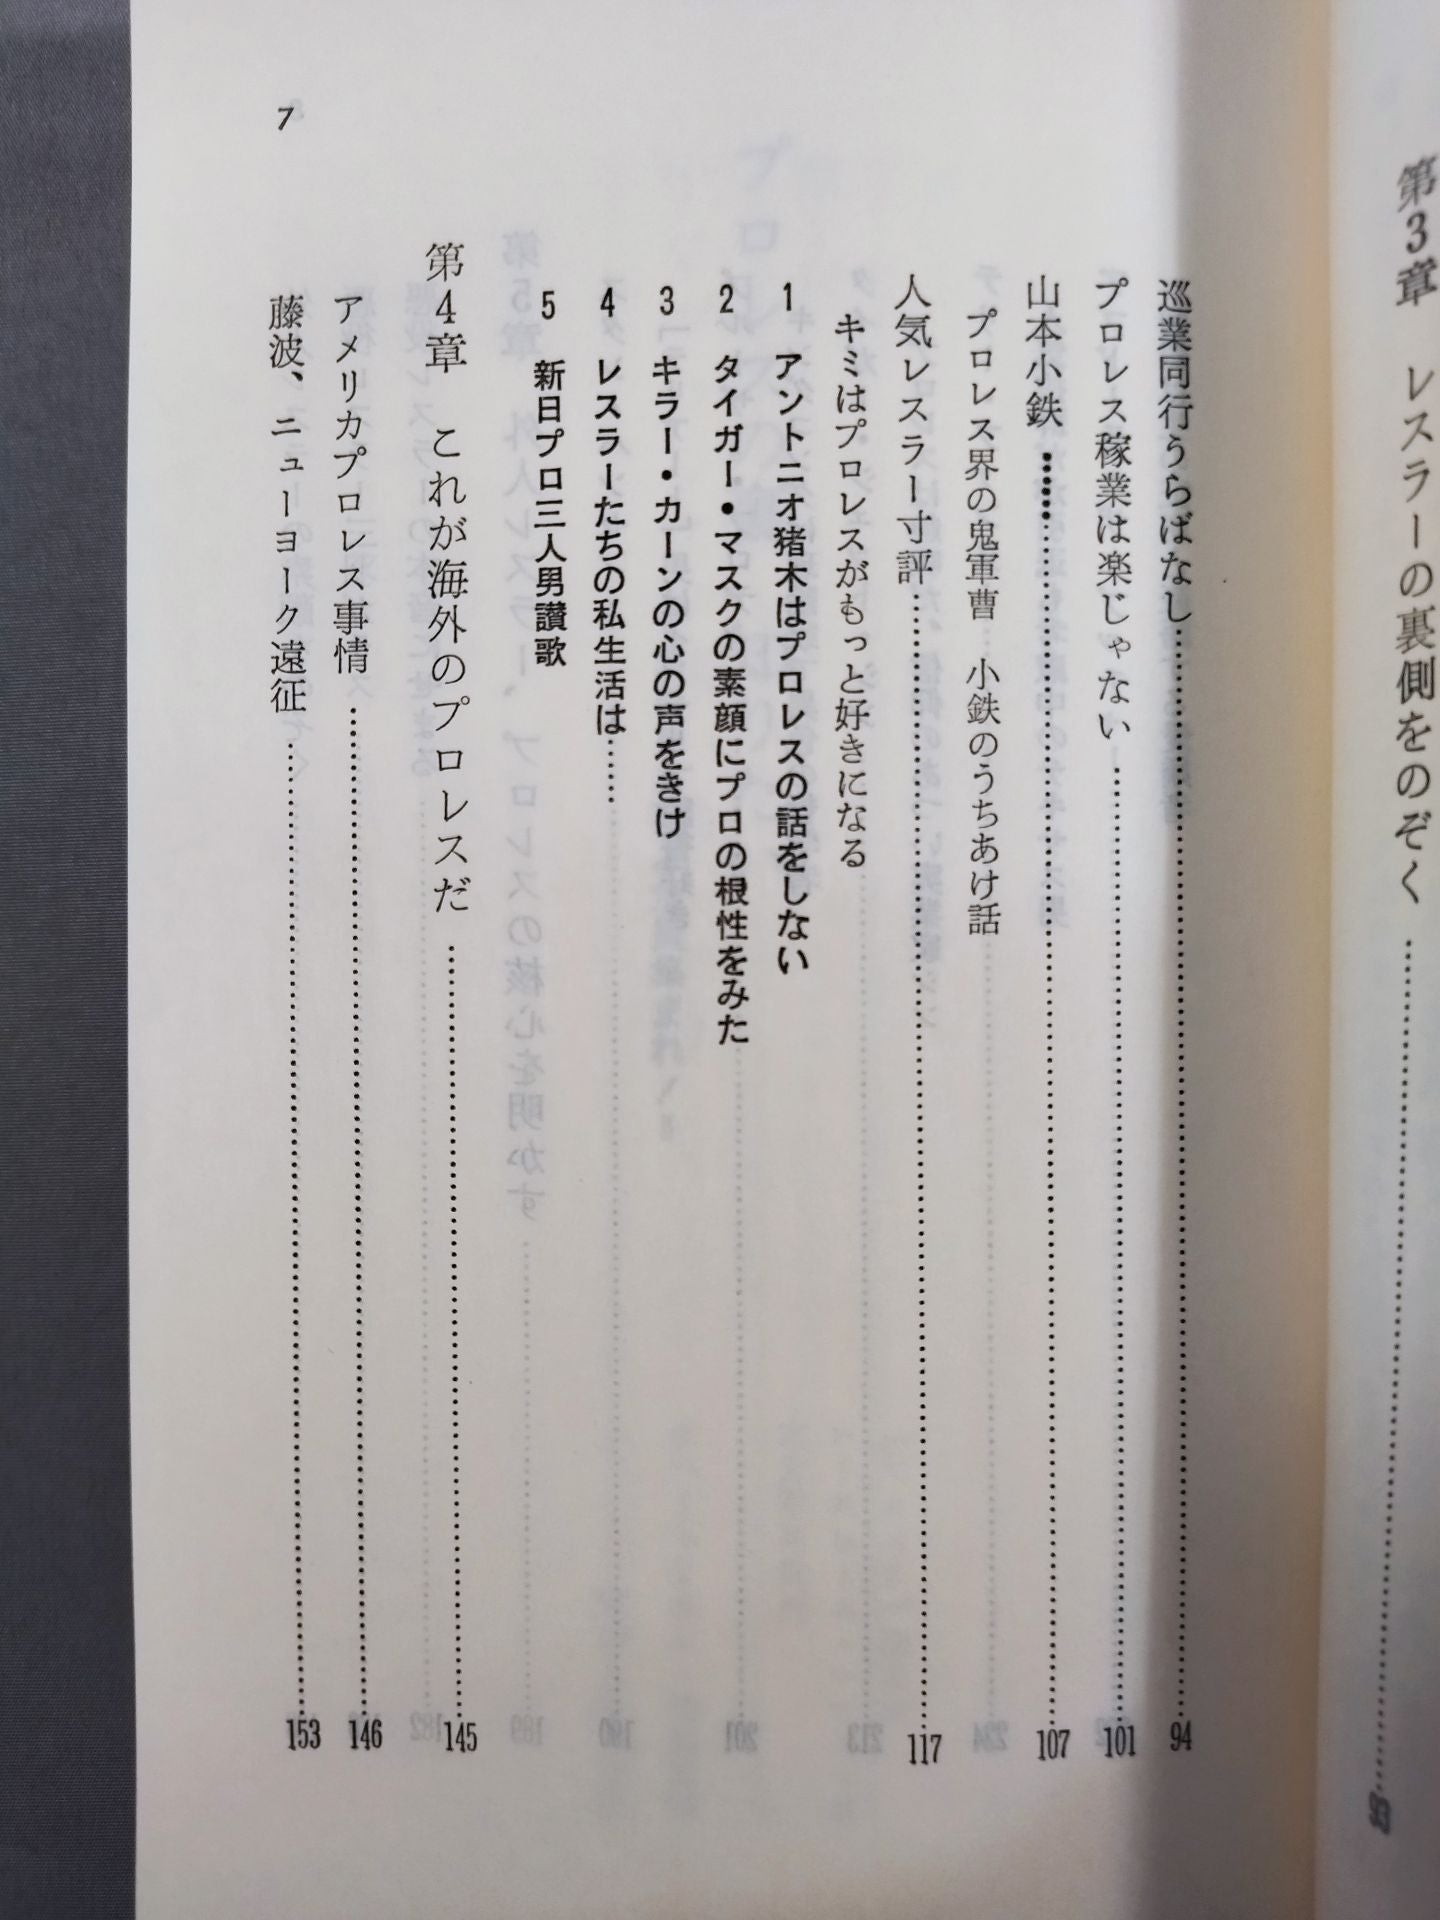 第3章 レスラーの裏側をのぞく……93
巡業同行うらばなし……94
プロレス稼業は楽じゃない……101
山本小鉄……107
プロレス界の鬼軍曹 小鉄のうちあけ話
人気レスラー寸評……117
キミはプロレスがもっと好きになる
1 アントニオ猪木はプロレスの話をしない
2 タイガー・マスクの素顔にプロの根性をみた
3 キラー・カーンの心の声をきけ
4 レスラーたちの私生活は……
5 新日プロ三人男讃歌
第4章 これが海外のプロレスだ……145
アメリカプロレス事情……146
藤波、ニューヨーク遠征……153
7